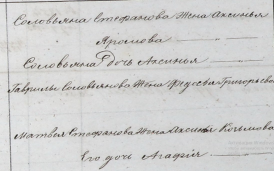 Соловьяна Стефанова Жена Аксинья
Яромова
Соловьяна Дочь Аксинья
Гаврилы Соловьянова Жена Федосья Григорьева
Матвея Стефанова Жена Аксинья Козьмова
Его дочь Агафия